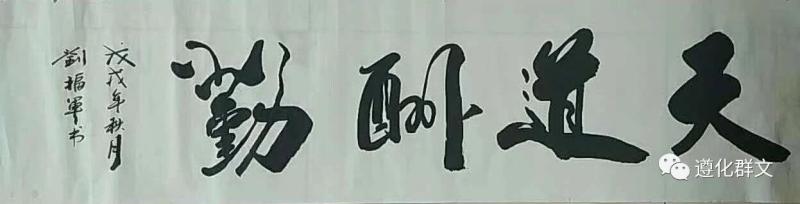 天道酬勤
戊戌年秋月
劉福軍书
遵化群文